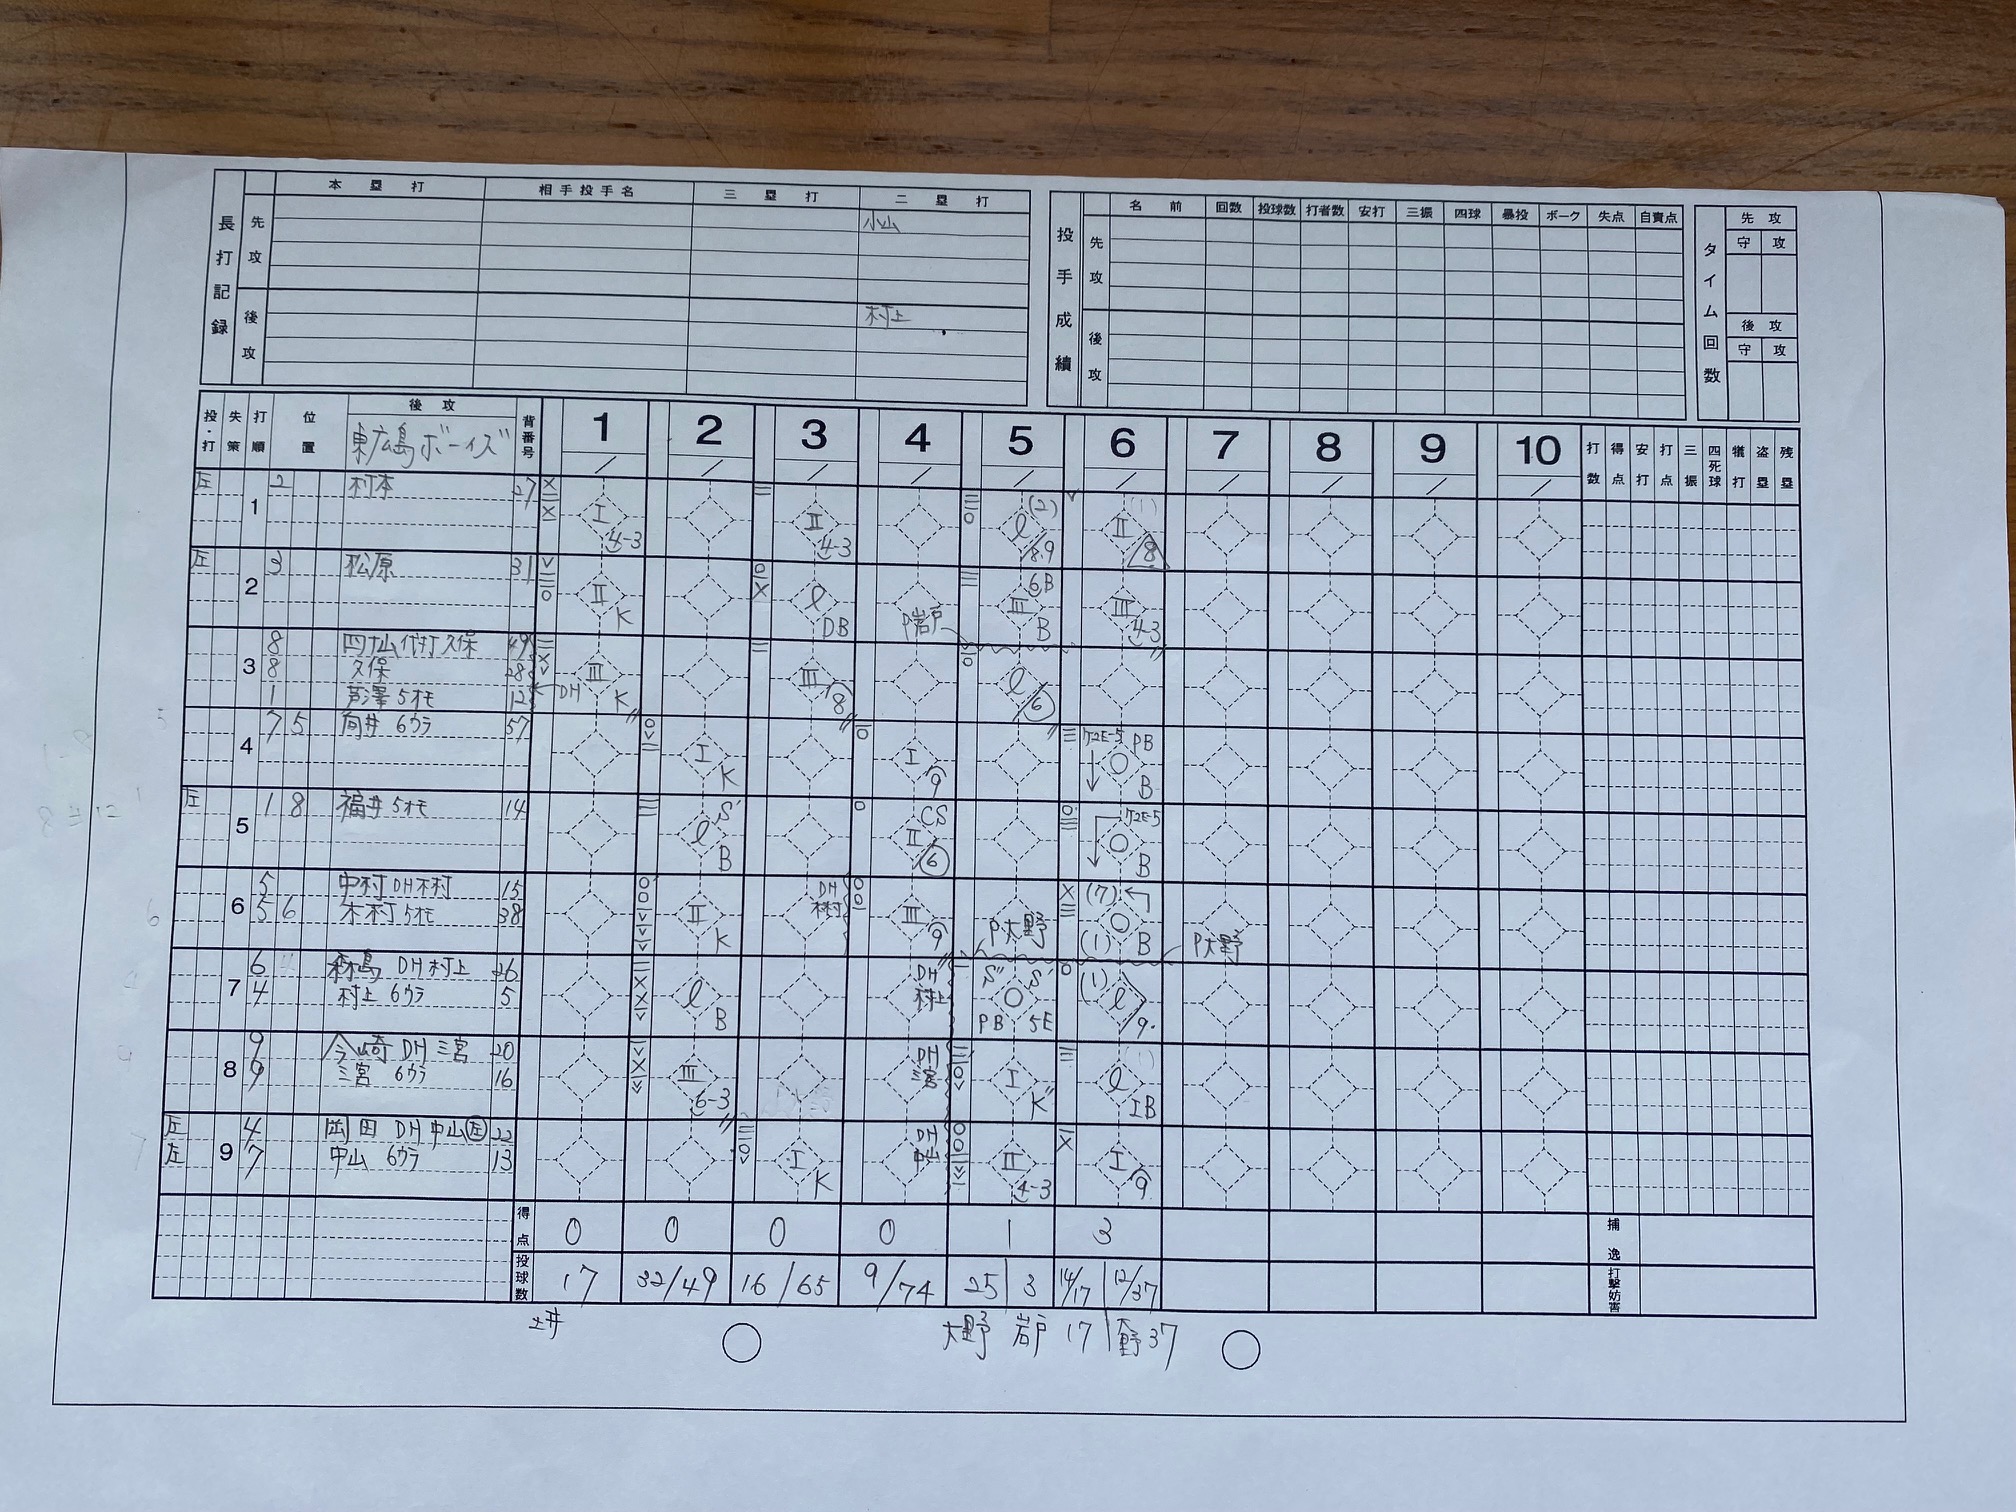 長打記録
本塁打 相手投手名 三塁打 二塁打
先攻 小山
後攻 村上
投手成績
名前 回数 投球数 打者数 安打 三振 四球 暴投 ボーク 失点 自責点
先攻
後攻
タイム回数
先攻
守 攻
後攻
守 攻
投・打 失策 打順 位置 後攻 背番号 1 2 3 4 5 6 7 8 9 10 打数 得点 安打 打点 三振 四死球 犠打 盗塁 残塁
東広島ボーイズ
左 1 2 村本 27 I 4-3 II 4-3 (2) l 89 (1) II 8
左 2 3 松原 31 II K l DB P岩戸 6B III B III 4-3
3 8 四払代打久保 49
8 久保 28 DH III K III 8 l 6
1 芦澤 5オモ 12
4 7 5 向井 6ウラ 57 I K I 9 ケ2E-5 PB B
左 5 1 8 福井 5オモ 14 S' l B CS II 6 ケ2E-5 B
6 5 中村 DH木村 15 II K DH木村 III 9 P大野 (7) (1) B P大野
5 6 木村 5オモ 38
7 6 森島 DH村上 26 l B DH村上 S'' S' PB 5E (1) l 9
4 村上 6ウラ 5
8 9 今崎 DH三宮 20 III 6-3 DH三宮 I K'' (1) l IB
9 三宮 6ウラ 16
左 9 4 岡田 DH中山左 22 I K DH中山 II 4-3 I 9
左 7 中山 6ウラ 13
得点 0 0 0 0 1 3 捕逸
投球数 17 32/49 16/65 9/74 25 3 14/17 12/37 打撃妨害
土井 大野 岩戸 17 大野 37